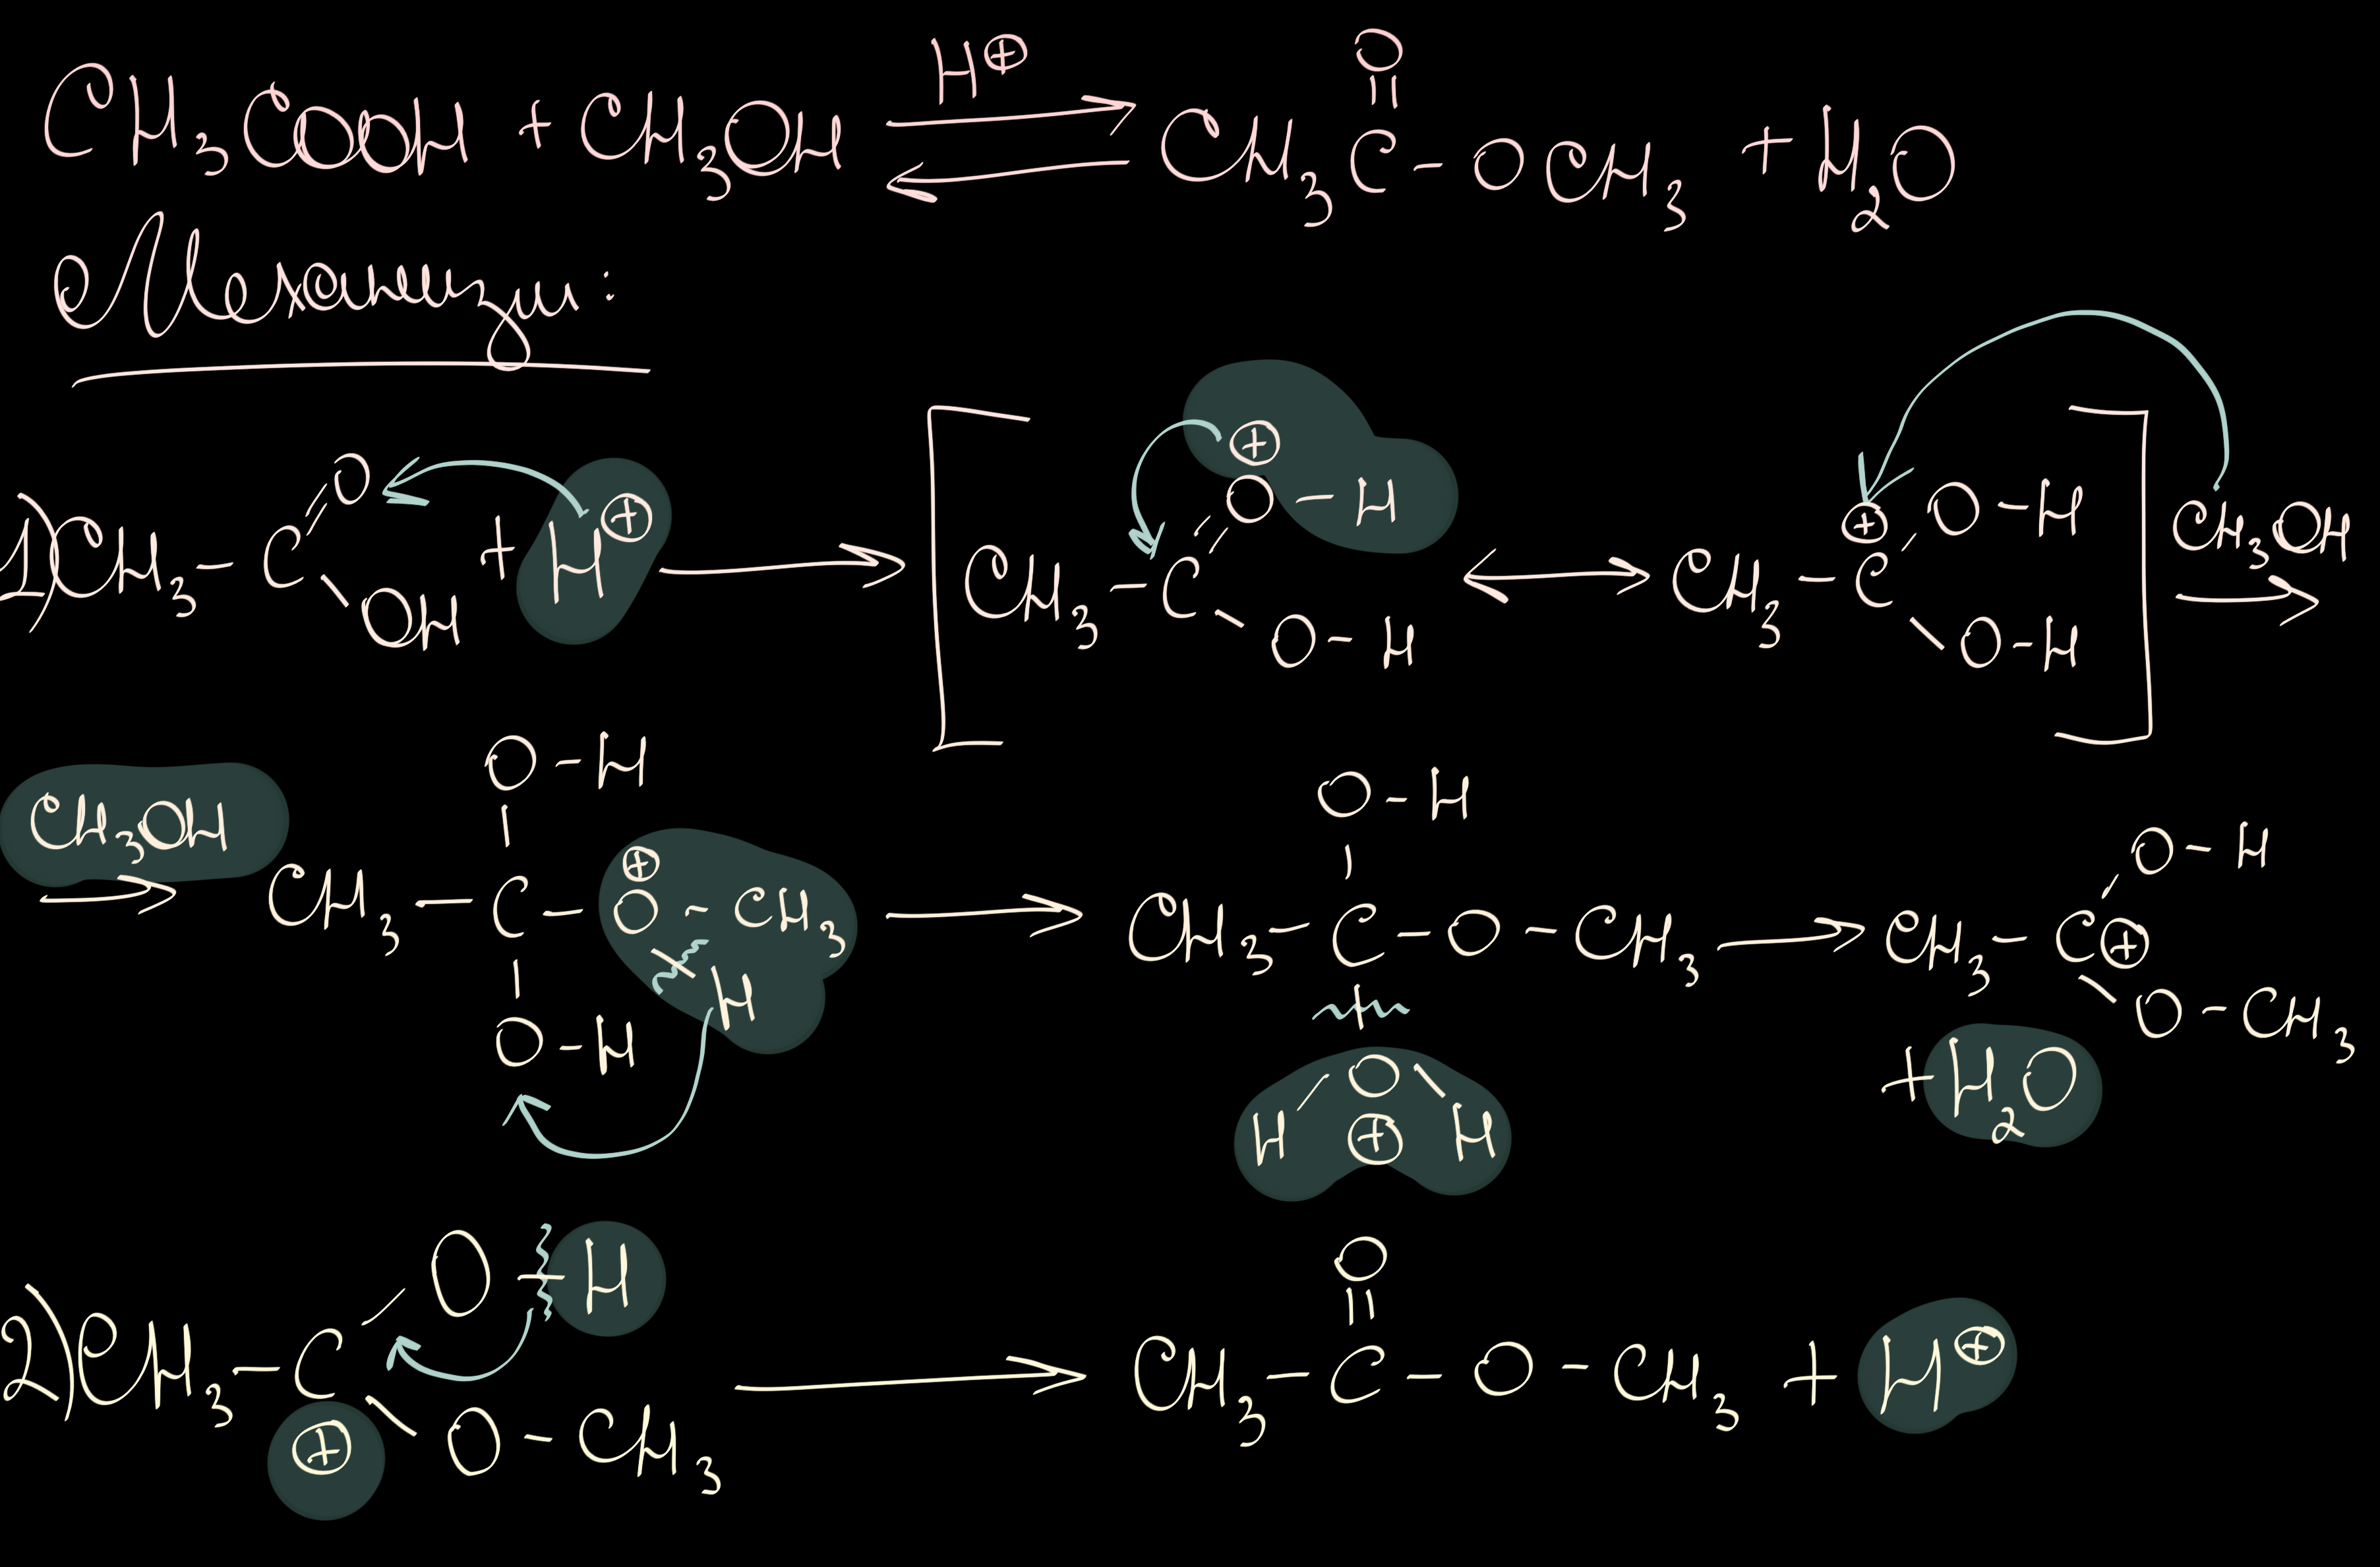 CH₃COOH + CH₃OH ⇌ H⊕ CH₃C(=O)-OCH₃ + H₂O
Механизм:
1) CH₃-C(=O)-OH + H⊕ → [CH₃-C(=O⊕-H)-O-H ↔ CH₃-C⊕(-O-H)-O-H] CH₃OH →
CH₃OH → CH₃-C(-O-H)(-O-H)-O⊕(-H)-CH₃ → CH₃-C(-O-H)(-O⊕H H)-O-CH₃ → CH₃-C⊕(-O-H)-O-CH₃ + H₂O
2) CH₃-C⊕(-O-H)-O-CH₃ → CH₃-C(=O)-O-CH₃ + H⊕